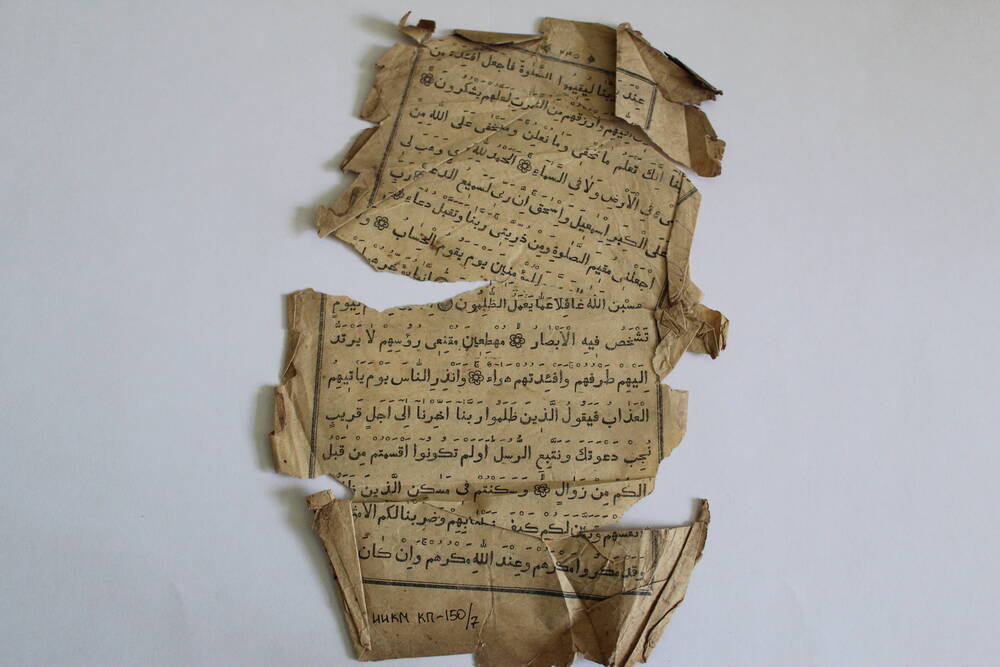 ❀ ٢٤٥ ❀
عِنْدَ رَبَّنَا لِيُقِيمُوا الصَّلٰوةَ فَاجْعَلْ اَفْئِدَةً مِنَ
اِلَيْهِمْ وَارْزُقْهُمْ مِنَ الثَّمَرٰتِ لَعَلَّهُمْ يَشْكُرُونَ
اِنَّكَ تَعْلَمُ مَا نُخْفٖى وَمَا نُعْلِنُ وَمَا يَخْفٰى عَلَى اللّٰهِ مِنْ
فِى الْاَرْضِ وَلَا فِى السَّمَاءِ اَلْحَمْدُ لِلّٰهِ وَهَبَ لٖى
عَلَى الْكِبَرِ اِسْمٰعٖيلَ وَاِسْحٰقَ اِنَّ رَبّٖى لَسَمٖيعُ الدُّعَاءِ رَبِّ
اجْعَلْنٖى مُقٖيمَ الصَّلٰوةِ وَمِنْ ذُرِّيَّتٖى رَبَّنَا وَتَقَبَّلْ دُعَاءِ
يَوْمَ يَقُومُ الْحِسَابُ وَ
اللّٰهَ غَافِلًا عَمَّا يَعْمَلُ الظّٰلِمُونَ لِيَوْمٍ
تَشْخَصُ فٖيهِ الْاَبْصَارُ مُهْطِعٖينَ مُقْنِعٖى رُؤُسِهِمْ لَا يَرْتَدُّ
اِلَيْهِمْ طَرْفُهُمْ وَاَفْئِدَتُهُمْ هَوَاءٌ وَاَنْذِرِ النَّاسَ يَوْمَ يَاْتٖيهِمُ
الْعَذَابُ فَيَقُولُ الَّذٖينَ ظَلَمُوا رَبَّنَا اَخِّرْنَا اِلٰى اَجَلٍ قَرٖيبٍ
نُجِبْ دَعْوَتَكَ وَنَتَّبِعِ الرُّسُلَ اَوَلَمْ تَكُونُوا اَقْسَمْتُمْ مِنْ قَبْلُ
لَكُمْ مِنْ زَوَالٍ وَسَكَنْتُمْ فٖى مَسَاكِنِ الَّذٖينَ
اَنْفُسَهُمْ لَكُمْ كَيْفَ بِهِمْ وَضَرَبْنَا لَكُمُ
وَقَدْ مَكَرُوا مَكْرَهُمْ وَعِنْدَ اللّٰهِ مَكْرُهُمْ وَاِنْ كَانَ
ИИКМ КП-150/7